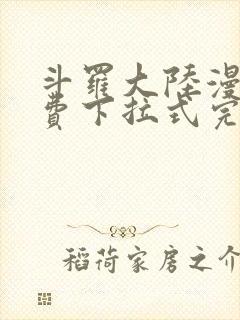 斗羅大陸漫
費下拉式完
稻荷家房之介